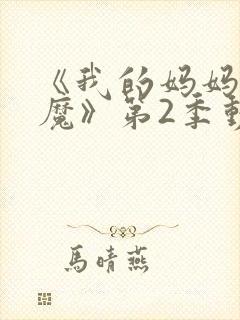 《我的妈妈
魔》第2季動
馬晴燕